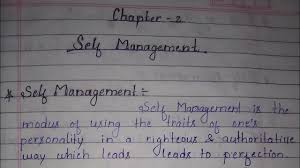 Chapter - 2
Self Management
* Self Management :-
Self Management is the
modus of using the traits of one's
personality in a righteous & authoritative
way which leads leads to perfection